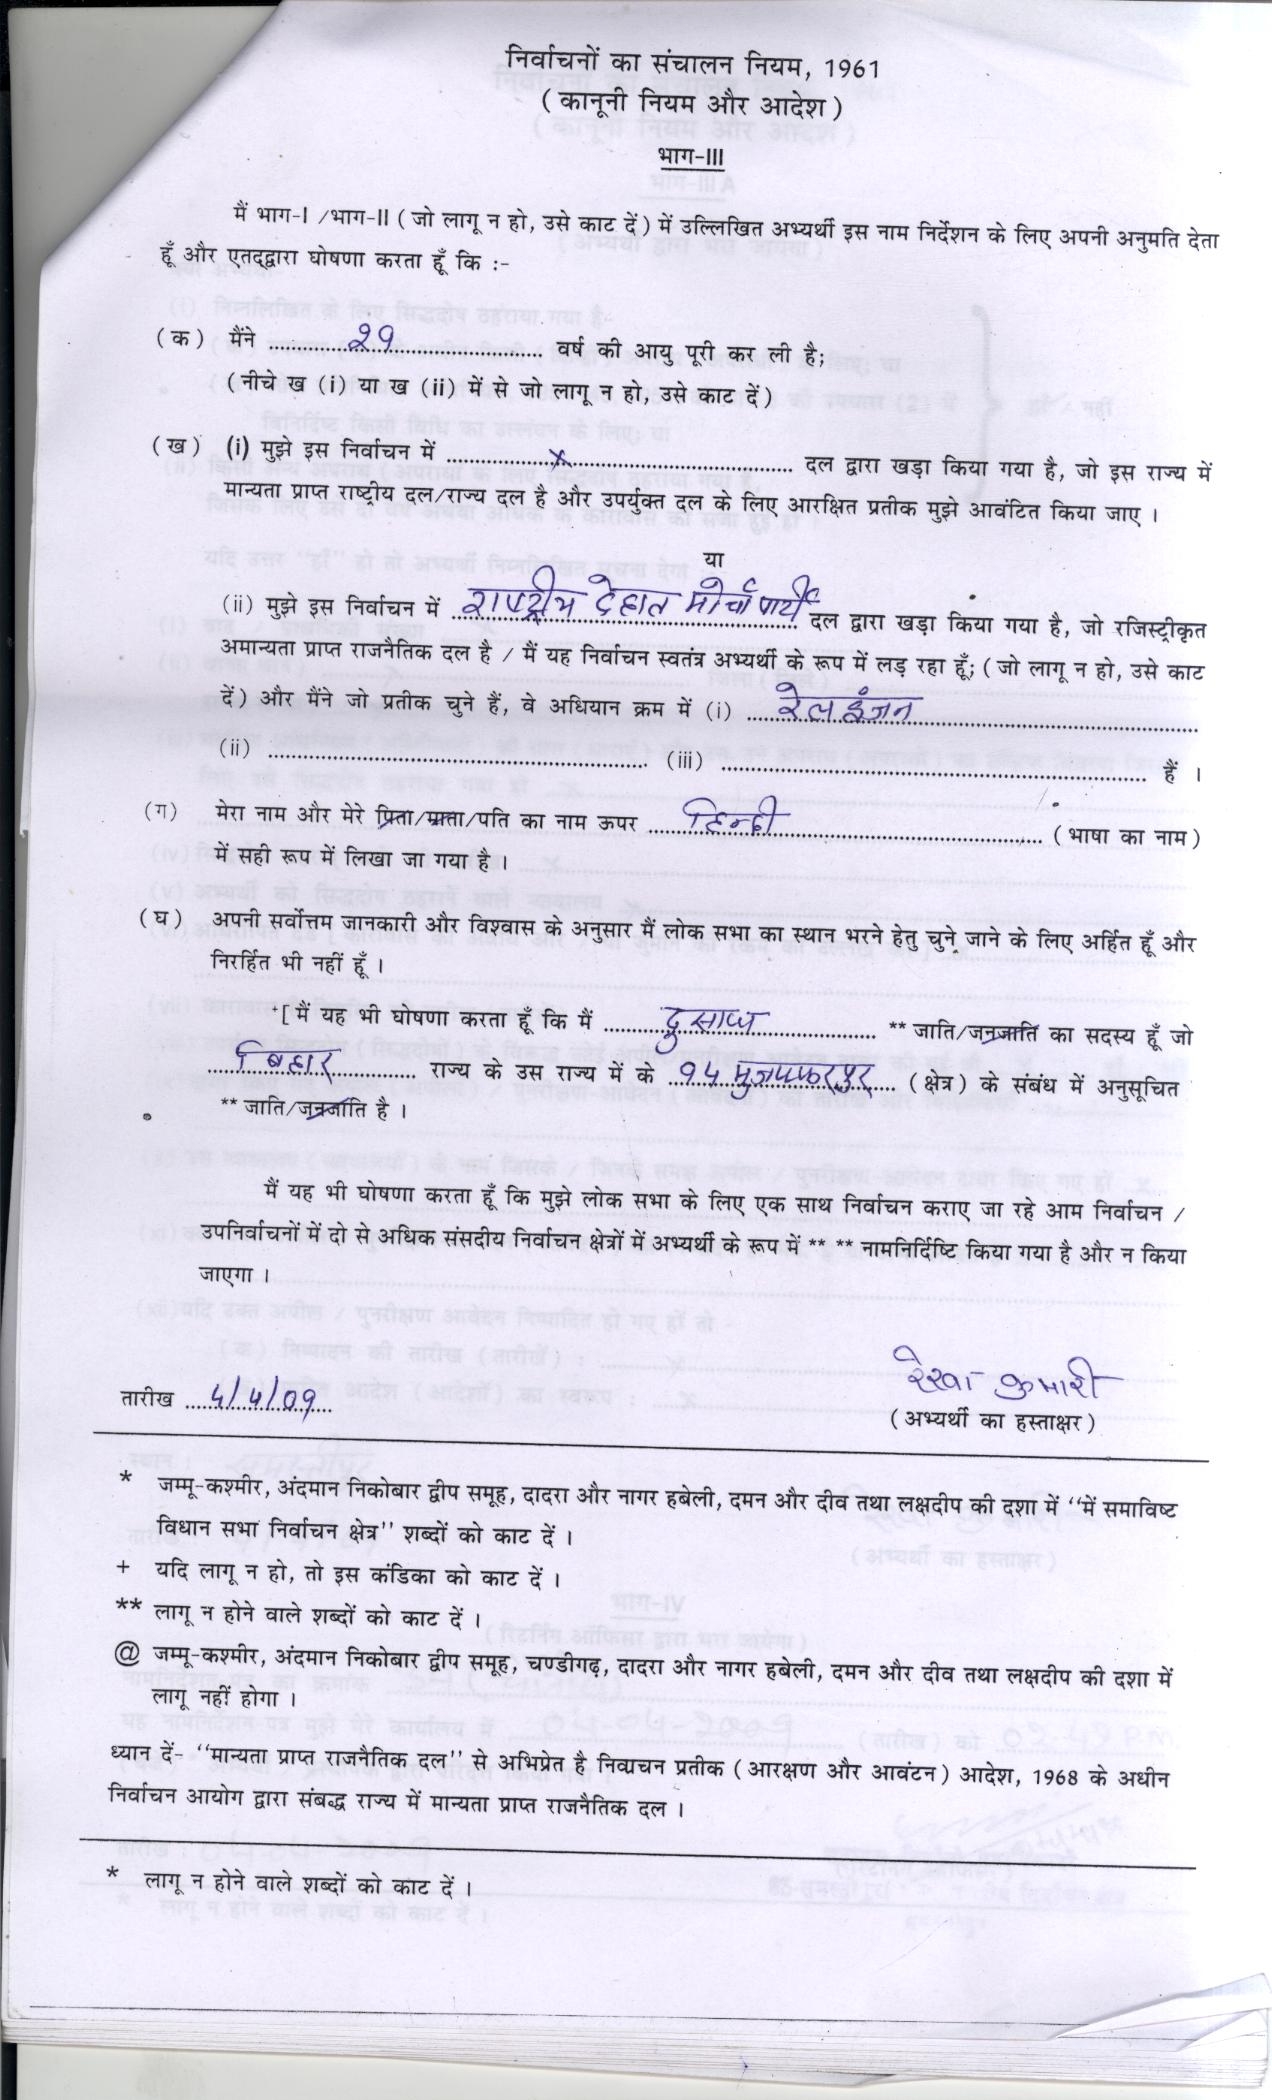 निर्वाचनों का संचालन नियम, 1961
( कानूनी नियम और आदेश )
भाग-III
मैं भाग-I /भाग-II ( जो लागू न हो, उसे काट दें ) में उल्लिखित अभ्यर्थी इस नाम निर्देशन के लिए अपनी अनुमति देता
हूँ और एतद्द्वारा घोषणा करता हूँ कि :-
( क ) मैंने २९ वर्ष की आयु पूरी कर ली है;
(नीचे ख (i) या ख (ii) में से जो लागू न हो, उसे काट दें )
( ख ) (i) मुझे इस निर्वाचन में x दल द्वारा खड़ा किया गया है, जो इस राज्य में
मान्यता प्राप्त राष्ट्रीय दल/राज्य दल है और उपर्युक्त दल के लिए आरक्षित प्रतीक मुझे आवंटित किया जाए ।
या
(ii) मुझे इस निर्वाचन में राष्ट्रीय देहात मोर्चा पार्टी दल द्वारा खड़ा किया गया है, जो रजिस्ट्रीकृत
अमान्यता प्राप्त राजनैतिक दल है / मैं यह निर्वाचन स्वतंत्र अभ्यर्थी के रूप में लड़ रहा हूँ; ( जो लागू न हो, उसे काट
दें ) और मैंने जो प्रतीक चुने हैं, वे अधियान क्रम में (i) रेल इंजन
(ii) (iii) हैं ।
(ग) मेरा नाम और मेरे पिता/माता/पति का नाम ऊपर हिन्दी ( भाषा का नाम )
में सही रूप में लिखा जा गया है।
( घ ) अपनी सर्वोत्तम जानकारी और विश्वास के अनुसार मैं लोक सभा का स्थान भरने हेतु चुने जाने के लिए अर्हित हूँ और
निरर्हित भी नहीं हूँ ।
+[ मैं यह भी घोषणा करता हूँ कि मैं दुसाध ** जाति/जनजाति का सदस्य हूँ जो
बिहार राज्य के उस राज्य में के १५ मुजफ्फरपुर ( क्षेत्र ) के संबंध में अनुसूचित
** जाति/जनजाति है ।
मैं यह भी घोषणा करता हूँ कि मुझे लोक सभा के लिए एक साथ निर्वाचन कराए जा रहे आम निर्वाचन /
उपनिर्वाचनों में दो से अधिक संसदीय निर्वाचन क्षेत्रों में अभ्यर्थी के रूप में ** ** नामनिर्दिष्टि किया गया है और न किया
जाएगा ।
रेखा कुमारी
तारीख 4/4/09 ( अभ्यर्थी का हस्ताक्षर )
* जम्मू-कश्मीर, अंदमान निकोबार द्वीप समूह, दादरा और नागर हबेली, दमन और दीव तथा लक्षदीप की दशा में ‘‘में समाविष्ट
विधान सभा निर्वाचन क्षेत्र’’ शब्दों को काट दें ।
+ यदि लागू न हो, तो इस कंडिका को काट दें ।
** लागू न होने वाले शब्दों को काट दें ।
@ जम्मू-कश्मीर, अंदमान निकोबार द्वीप समूह, चण्डीगढ़, दादरा और नागर हबेली, दमन और दीव तथा लक्षदीप की दशा में
लागू नहीं होगा ।
ध्यान दें- ‘‘मान्यता प्राप्त राजनैतिक दल’’ से अभिप्रेत है निवाचन प्रतीक ( आरक्षण और आवंटन ) आदेश, 1968 के अधीन
निर्वाचन आयोग द्वारा संबद्ध राज्य में मान्यता प्राप्त राजनैतिक दल ।
* लागू न होने वाले शब्दों को काट दें ।